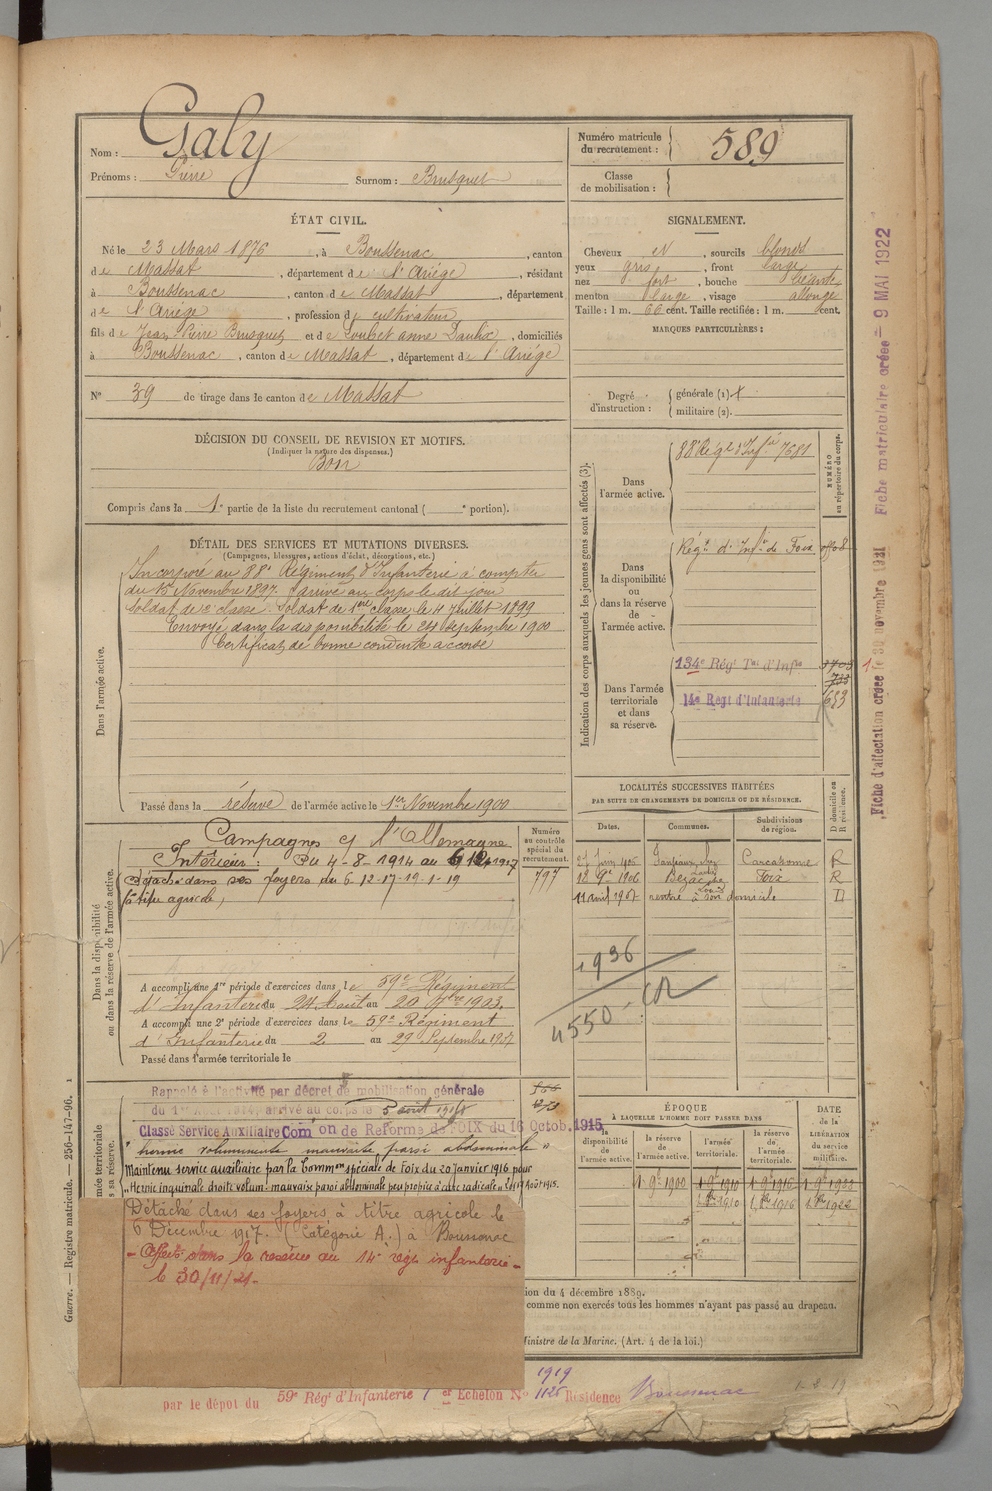 Nom : Galy
Prénoms : Pierre Surnom : Brusquet
Numéro matricule du recrutement : 589
Classe de mobilisation :
ÉTAT CIVIL.
Né le 23 Mars 1876, à Boussenac, canton
de Massat, département de l'Ariége, résidant
à Boussenac, canton de Massat, département
de l'Ariège, profession de cultivateur
fils de Jean Pierre Brusquet et de Loubet anne, domiciliés
à Boussenac, canton de Massat, département de l'Ariége
N° 39 de tirage dans le canton de Massat
SIGNALEMENT.
Cheveux N, sourcils blonds
yeux gris, front large
nez fort, bouche béante
menton large, visage allongé
Taille : 1 m. 66 cent. Taille rectifiée : 1 m. cent.
MARQUES PARTICULIÈRES :
Degré d'instruction : générale (1)
militaire (2).
DÉCISION DU CONSEIL DE REVISION ET MOTIFS.
(Indiquer la nature des dispenses.)
Bon
Compris dans la 1e partie de la liste du recrutement cantonal ( e portion).
DÉTAIL DES SERVICES ET MUTATIONS DIVERSES.
(Campagnes, blessures, actions d'éclat, décorations, etc.)
Dans l'armée active.
Incorporé au 88e Régiment d'Infanterie à compter
du 15 Novembre 1897. Arrivé au corps le dit jour
soldat de 2e classe. Soldat de 1ere classe le 4 Juillet 1899
Envoyé dans la disponibilité le 24 septembre 1900
Certificat de bonne conduite accordé
Passé dans la réserve de l'armée active le 1er Novembre 1900
Indication des corps auxquels les jeunes gens sont affectés (3).
NUMÉRO au répertoire du corps.
Dans l'armée active.
88e Régt d'Infie 7681
Dans la disponibilité ou dans la réserve de l'armée active.
Régt d'Infie de Foix
Dans l'armée territoriale et dans sa réserve.
134e Régt Tal d'Infie
14e Regt d'Infanterie 653
LOCALITÉS SUCCESSIVES HABITÉES
PAR SUITE DE CHANGEMENTS DE DOMICILE OU DE RÉSIDENCE.
Dates. Communes. Subdivisions de région. D domicile ou R résidence.
Juin 1906 Carcassonne R
1906 Foix R
11 avril 1907 rentré à son domicile D
1936
4550
Dans la disponibilité ou dans la réserve de l'armée active.
Numéro au contrôle spécial du recrutement.
797
Campagnes c/ l'Allemagne
Intérieur : Du 4-8-1914 au 6 12 1917
Détaché dans ses foyers du 6-12-17-19-1-19
à titre agricole,
A accompli une 1re période d'exercices dans le 59e Régiment
d'Infanterie du 24 Août au 20 7bre 1903
A accompli une 2e période d'exercices dans le 59e Régiment
d'Infanterie du 2 au 29 Septembre 1907
Passé dans l'armée territoriale le
Rappelé à l'activité par décret de mobilisation générale
du 1er Août 1914, arrivé au corps le 5 août
Classé Service Auxiliaire Comon de Réforme de FOIX du 16 Octob. 1915
hernie volumineuse mauvaise paroi abdominale
Maintenu service auxiliaire par la Common spéciale de Foix du 20 Janvier 1916 pour
"Hernie inguinale droite volum. mauvaise paroi abdominale peu propice à cure radicale" Août 1915.
Détaché dans ses foyers à titre agricole le
6 Décembre 1917. (Catégorie A.) à Boussenac
- Affecté dans la réserve au 14e régt infanterie -
le 30/11/21-
ÉPOQUE
À LAQUELLE L'HOMME DOIT PASSER DANS
la disponibilité. la réserve de l'armée active. l'armée territoriale. la réserve de l'armée territoriale.
DATE de la LIBÉRATION DU SERVICE militaire.
1 9bre 1900 1 9bre 1910 1 9bre 1916 1 9bre 1922
1910 1916 1922
ion du 4 décembre 1889.
comme non exercés tous les hommes n'ayant pas passé au drapeau.
Ministre de la Marine. (Art. 4 de la loi.)
par le dépot du 59e Régt d'Infanterie 7 er Echelon N° 1125 Résidence Boussenac
1919
Guerre. — Registre matricule. — 256-147-96. 1
Fiche matriculaire créée - 9 MAI 1922
Fiche d'affectation créée le 30 novembre 1921